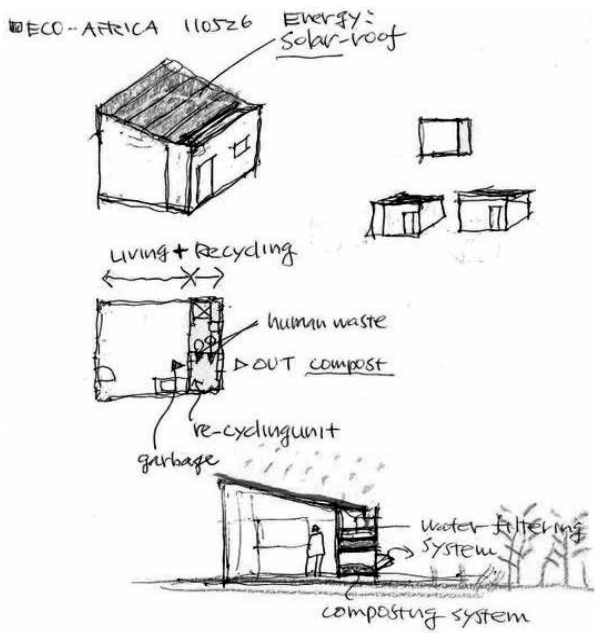 ECO--AFRICA 110526
Energy:
Solar-roof
Living + Recycling
human waste
▷OUT compost
re-cycling unit
garbage
water filtering
system
composting system